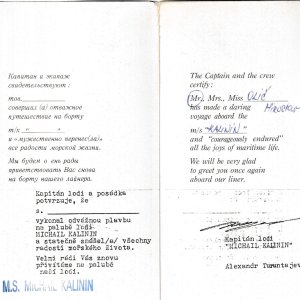 Капитан и экипаж
свидетельствуют :
тов.
совершил (а) отважное
путешествие на борту
т/х " "
и «мужественно перенес(ла)»
все радости морской жизни.
Мы будем о ень рады
приветствовать Вас снова
на борту нашего лайнера.
Kapitán lodi a posádka
potvrzuje, že
s.
vykonal odvážnou plavbu
na palubě lodi
MICHAIL KALININ
a statečně snášel/a/ všechny
radosti mořského života.
Velmi rádi Vás znovu
přivítáme na palubě
naší lodi.
M.S. MICHAIL KALININ
The Captain and the crew
certify:
Mr., Mrs., Miss
has made a daring
voyage aboard the
m/s "KALININ"
and "courageously endured"
all the joys of maritime life.
We will be very glad
to greet you once again
aboard our liner.
Kapitán lodi
"MICHAIL KALININ"
Alexandr